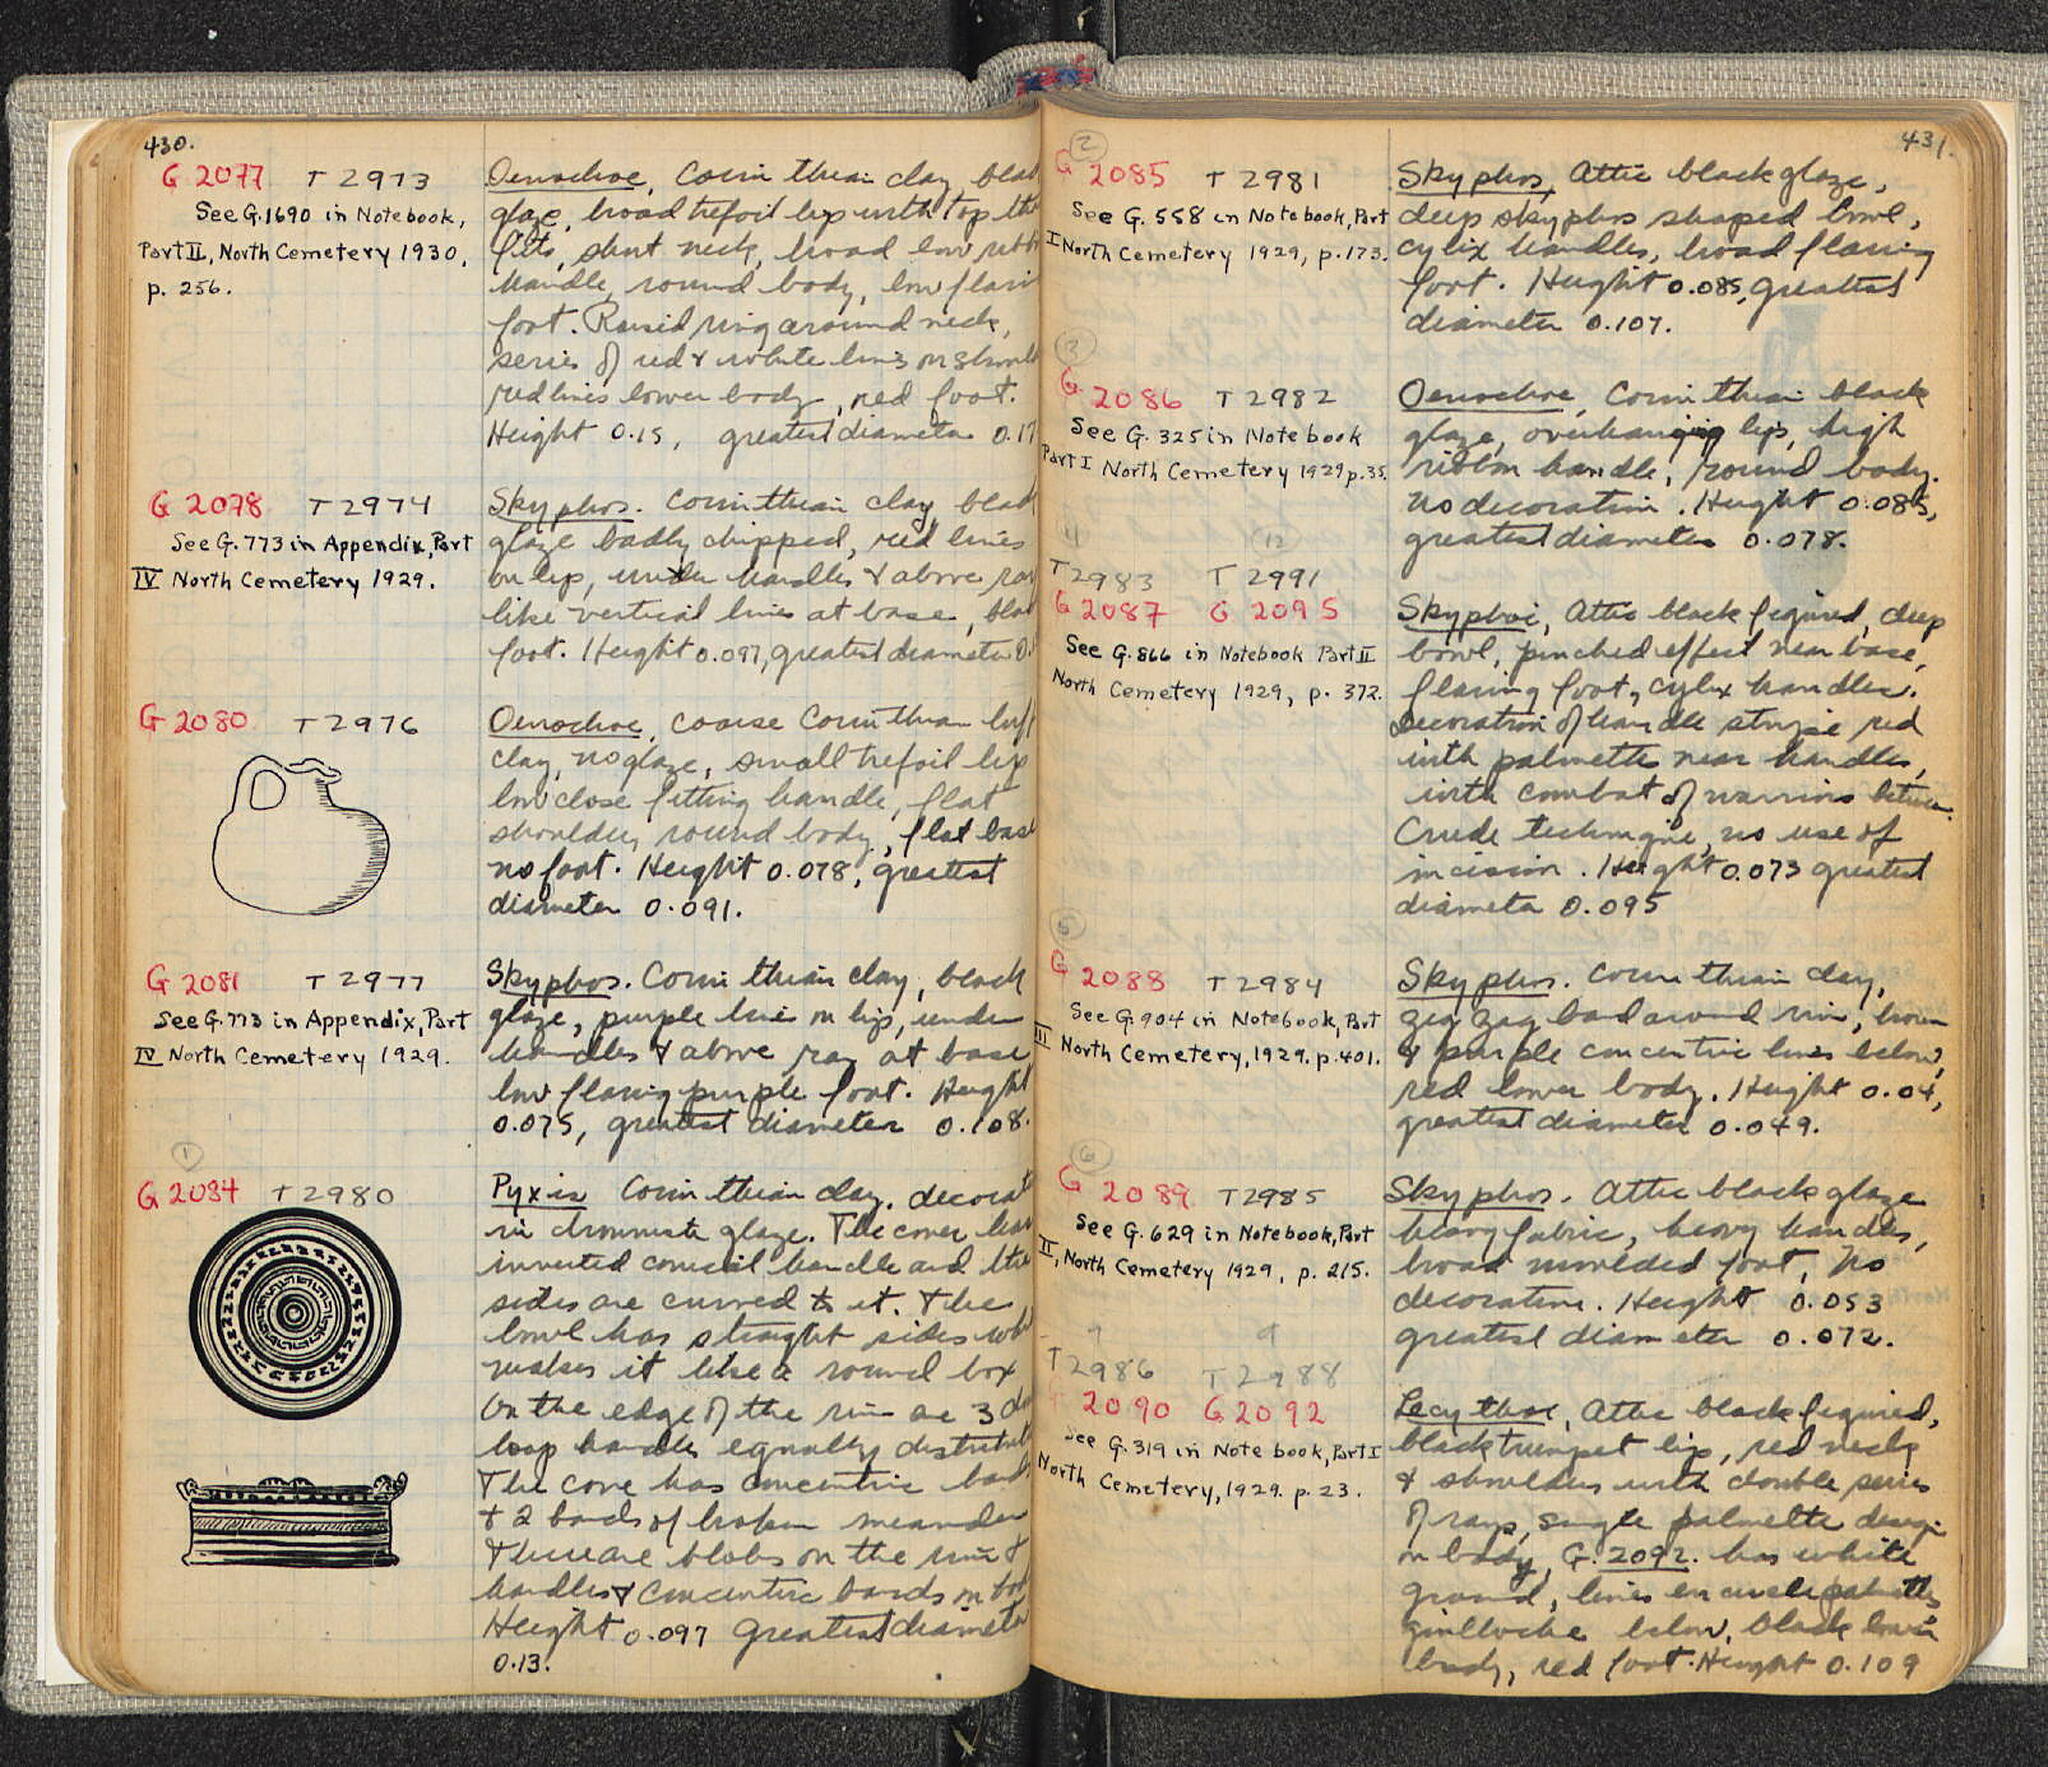 430.
G 2077 T 2973
See G.1690 in Notebook,
Part II, North Cemetery 1930,
p. 256.
Oenochoe, Corinthian clay, black
glaze, broad trefoil lip with top that
fits, short neck, broad low ribbon
handle, round body, low flaring
foot. Raised ring around neck,
series of red & white lines on should
red lines lower body, red foot.
Height 0.15, greatest diameter 0.17
G 2078 T 2974
See G.773 in Appendix, Part
IV North Cemetery 1929.
Skyphos. Corinthian clay, black
glaze badly chipped, red lines
on lip, under handles & above ray
like vertical lines at base, black
foot. Height 0.097, greatest diameter
G 2080 T 2976
Oenochoe, coarse Corinthian buff
clay, no glaze, small trefoil lip
low close fitting handle, flat
shoulder, round body, flat base
no foot. Height 0.078, greatest
diameter 0.091.
G 2081 T 2977
See G.773 in Appendix, Part
IV North Cemetery 1929.
Skyphos. Corinthian clay, black
glaze, purple line on lip, under
handles & above ray at base
low flaring purple foot. Height
0.075, greatest diameter 0.108.
1
G 2084 T 2980
Pyxis Corinthian clay, decorat
in glaze. The cover has
inverted conical handle and the
sides are curved to it. The
bowl has straight sides
makes it like a round box
On the edge of the rim are 3
loop handles equally distribut
The cove has concentric bands
& 2 bands of broken meander
There are blobs on the rim &
handles & concentric bands on body
Height 0.097 Greatest diameter
0.13.
431.
2
G 2085 T 2981
See G. 558 in Notebook, Part
I North Cemetery 1929, p.173.
Skyphos, Attic black glaze,
deep skyphos shaped bowl,
cylix handles, broad flaring
foot. Height 0.085, greatest
diameter 0.107.
3
G 2086 T 2982
See G. 325 in Notebook
Part I North Cemetery 1929 p.35.
Oenochoe, Corinthian black
glaze, overhanging lip, high
ribbon handle, round body.
No decoration. Height 0.085,
greatest diameter 0.078.
4 12
T 2983 T 2991
G 2087 G 2095
See G.866 in Notebook Part II
North Cemetery 1929, p. 372.
Skyphoi, Attic black figured, deep
bowl, pinched effect near base,
flaring foot, cylix handles.
Decoration of handle stripe red
with palmette near handles,
with combat of warriors between
Crude technique, no use of
incision. Height 0.073 greatest
diameter 0.095
5
G 2088 T 2984
See G.904 in Notebook, Part
III North Cemetery, 1929. p.401.
Skyphos. Corinthian clay,
zig zag band around rim, brown
& purple concentric lines below,
red lower body. Height 0.04,
greatest diameter 0.049.
6
G 2089 T 2985
See G.629 in Notebook, Part
II, North Cemetery 1929, p. 215.
Skyphos. Attic black glaze
heavy fabric, heavy handles,
broad moulded foot, No
decoration. Height 0.053
greatest diameter 0.072.
7 9
T 2986 T 2988
G 2090 G 2092
See G.319 in Note book, Part I
North Cemetery, 1929. p. 23.
Lecythoi, Attic black figured,
black trumpet lip, red neck
& shoulders with double series
of rays, single palmette design
on body, G. 2092. has white
ground, lines encircle palmettes
guilloche below, black lower
body, red foot. Height 0.109